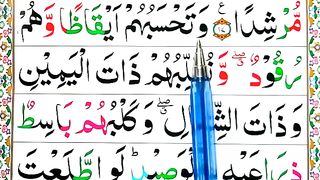 مُّرْشِدًا ۝ وَتَحْسَبُهُمْ اَيْقَاظًا وَّهُمْ
رُقُوْدٌ ۖ وَّنُقَلِّبُهُمْ ذَاتَ الْيَمِيْنِ
وَذَاتَ الشِّمَالِ ۖ وَكَلْبُهُمْ بَاسِطٌ
ذِرَاعَيْهِ بِالْوَصِيْدِ ؕ لَوِ اطَّلَعْتَ